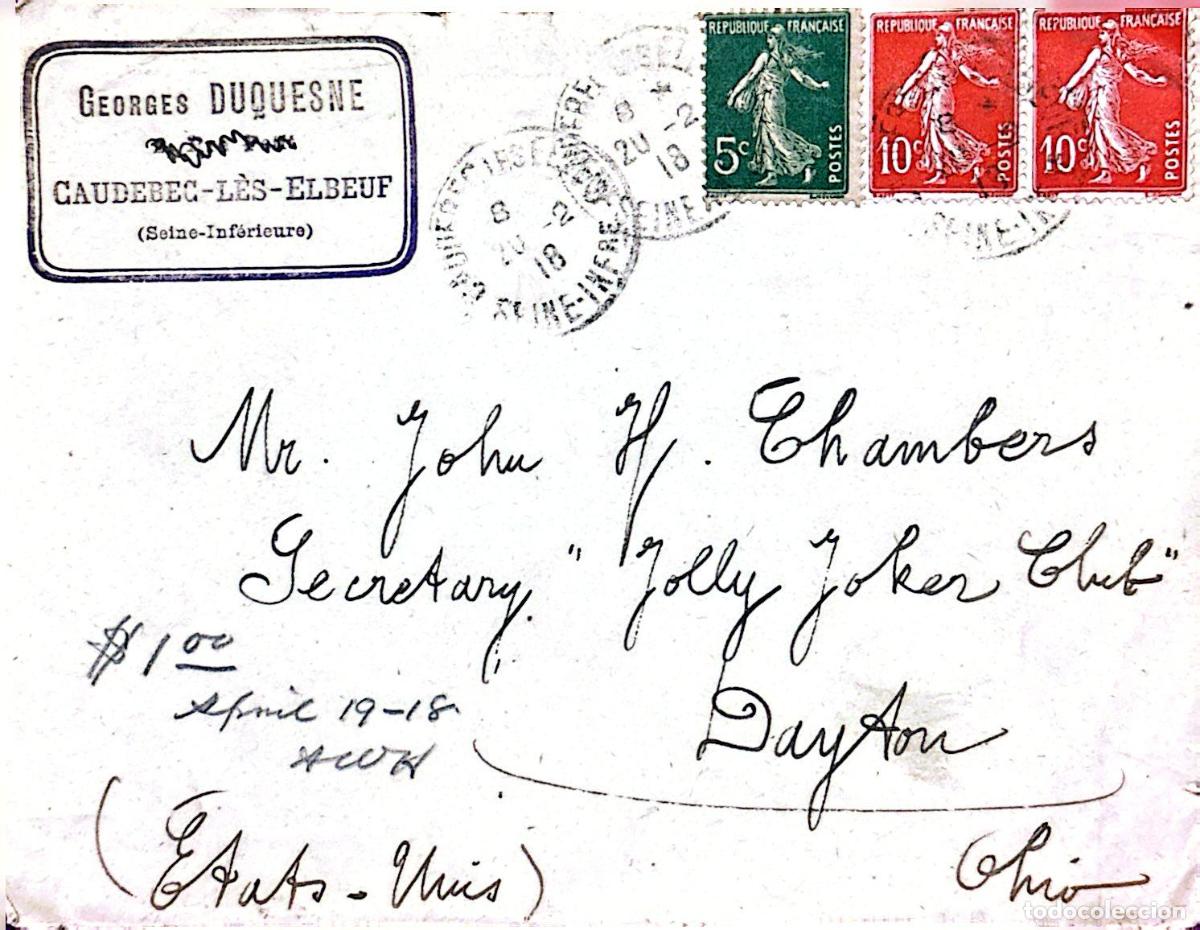 GEORGES DUQUESNE
CAUDEBEC-LÈS-ELBEUF
(Seine-Inférieure)
CAUDEBEC LES ELBEUF
8
20 -2
18
SEINE-INFRE
8 *
20 -2
18
SEINE
REPUBLIQUE FRANÇAISE
5c
POSTES
REPUBLIQUE FRANÇAISE
10c
POSTES
REPUBLIQUE FRANÇAISE
10c
POSTES
SEINE-IN
Mr. John H. Chambers
Secretary, "Jolly Joker Club"
$1 00
April 19-18
AWH
Dayton
(Etats-Unis)
Ohio
todocoleccion